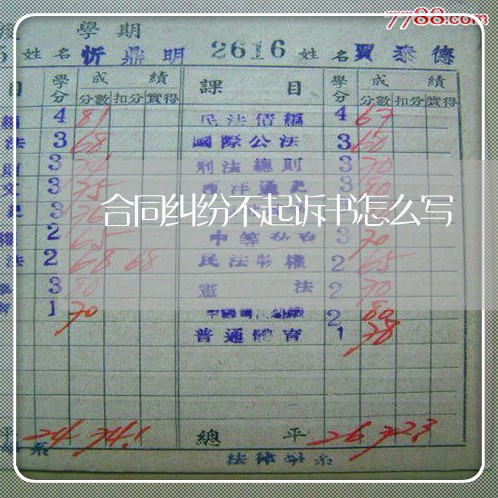 7788.com
學期
姓名 忻鼎明 2616 姓名 賈泰德
目 學分 成績 課目 學分 成績
分數 扣分 實得 分數 扣分 實得
4 81 民法債編 4 67
法 3 68 國際公法 3 60
3 刑法總則 3 70
文 3 75 西洋通史 3 80
合同纠纷不起诉书怎么写
2 65 3 70
法 2 68 68 民法物權 2 65
3 80 憲法 2 70
1 70 2 80
普通體育 1 78
平 24 74.1 總平 26 72.3
系 法律學系